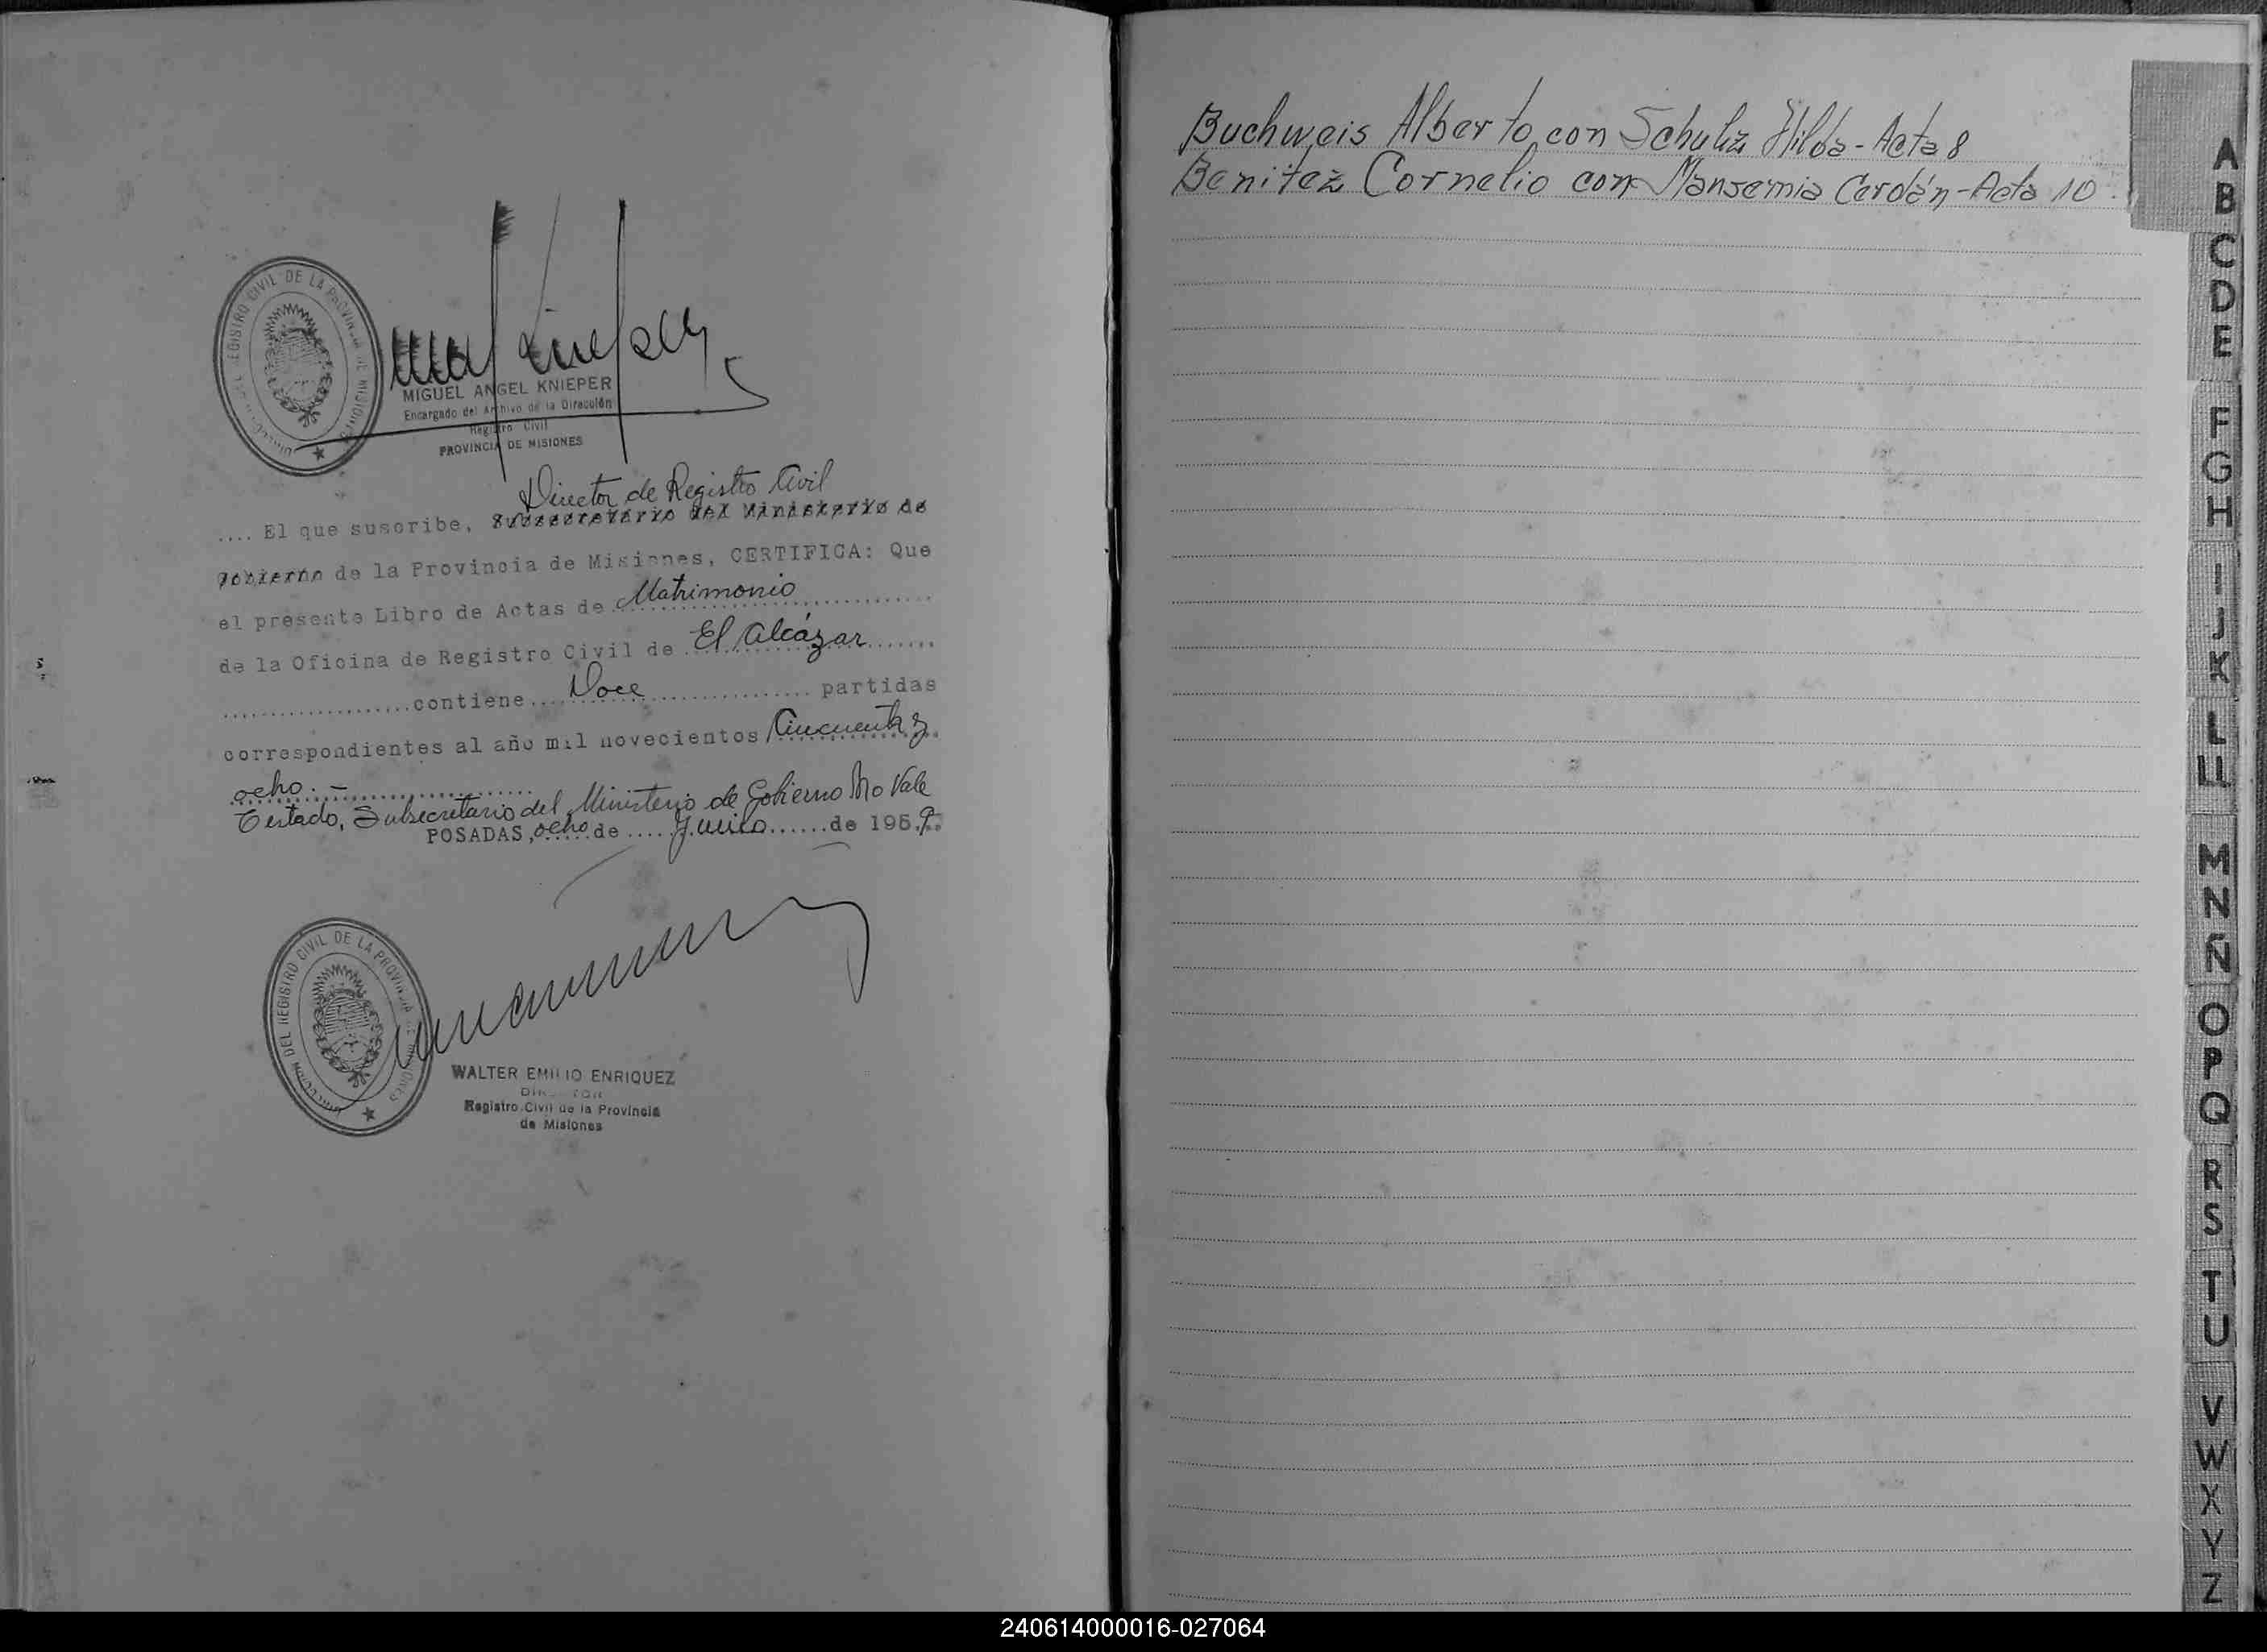 DIRECCIÓN DEL REGISTRO CIVIL DE LA PROVINCIA DE MISIONES
MIGUEL ANGEL KNIEPER
Encargado del Archivo de la Dirección
Registro Civil
PROVINCIA DE MISIONES
Director de Registro Civil
.... El que suscribe, Subsecretario del Ministerio de
Gobierno de la Provincia de Misiones, CERTIFICA: Que
el presente Libro de Actas de Matrimonio
de la Oficina de Registro Civil de El Alcázar
contiene Doce partidas
correspondientes al año mil novecientos Cincuenta y
ocho. -
Testado, Subsecretario del Ministerio de Gobierno No Vale
POSADAS, ocho de Junio de 1959.
DIRECCIÓN DEL REGISTRO CIVIL DE LA PROVINCIA DE MISIONES
WALTER EMILIO ENRIQUEZ
DIRECTOR
Registro Civil de la Provincia
de Misiones
Buchweis Alberto con Schulz Hilda - Acta 8
Benitez Cornelio con Mansemia Cerdán - Acta 10.
A
B
C
D
E
F
G
H
I
J
K
L
LL
M
N
Ñ
O
P
Q
R
S
T
U
V
W
X
Y
Z
240614000016-027064